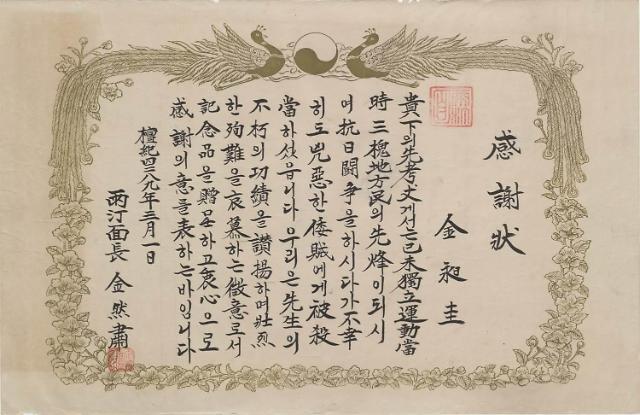 感謝狀
金昶圭
貴下의先考丈게서는己未獨立運動當
時三槐地方民의先烽이되시
여抗日鬪争을하시다가不幸
히도兇惡한倭賊에게被殺
當하셨읍니다우리은先生의
不朽의功績을讚揚하며壯烈
한殉難을哀慕하는微意로서
記念品을贈呈하고衷心으로
感謝의意를表하는바입니다
檀紀四二八九年三月一日
雨汀面長 金然肅